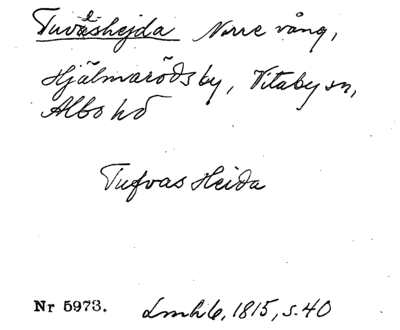 Tuvåshejda Norre vång,
Hjälmarödsby, Vitaby sn,
Albo hd
Tufvas Heida
Nr 5973. Lmhb, 1815, s. 40